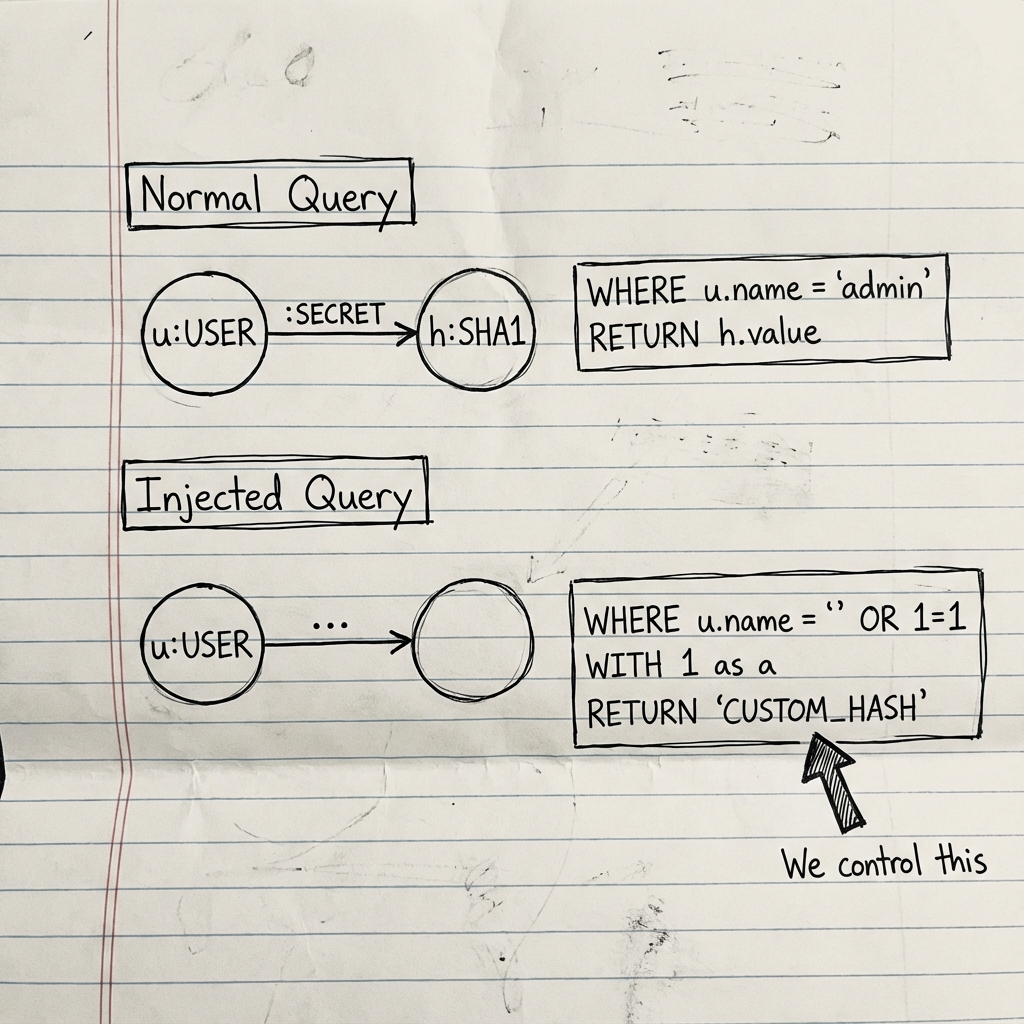 Normal Query
u:USER
:SECRET
h:SHA1
WHERE u.name = ‘admin’
RETURN h.value
Injected Query
u:USER
...
WHERE u.name = ‘’ OR 1=1
WITH 1 as a
RETURN ‘CUSTOM_HASH’
We control this